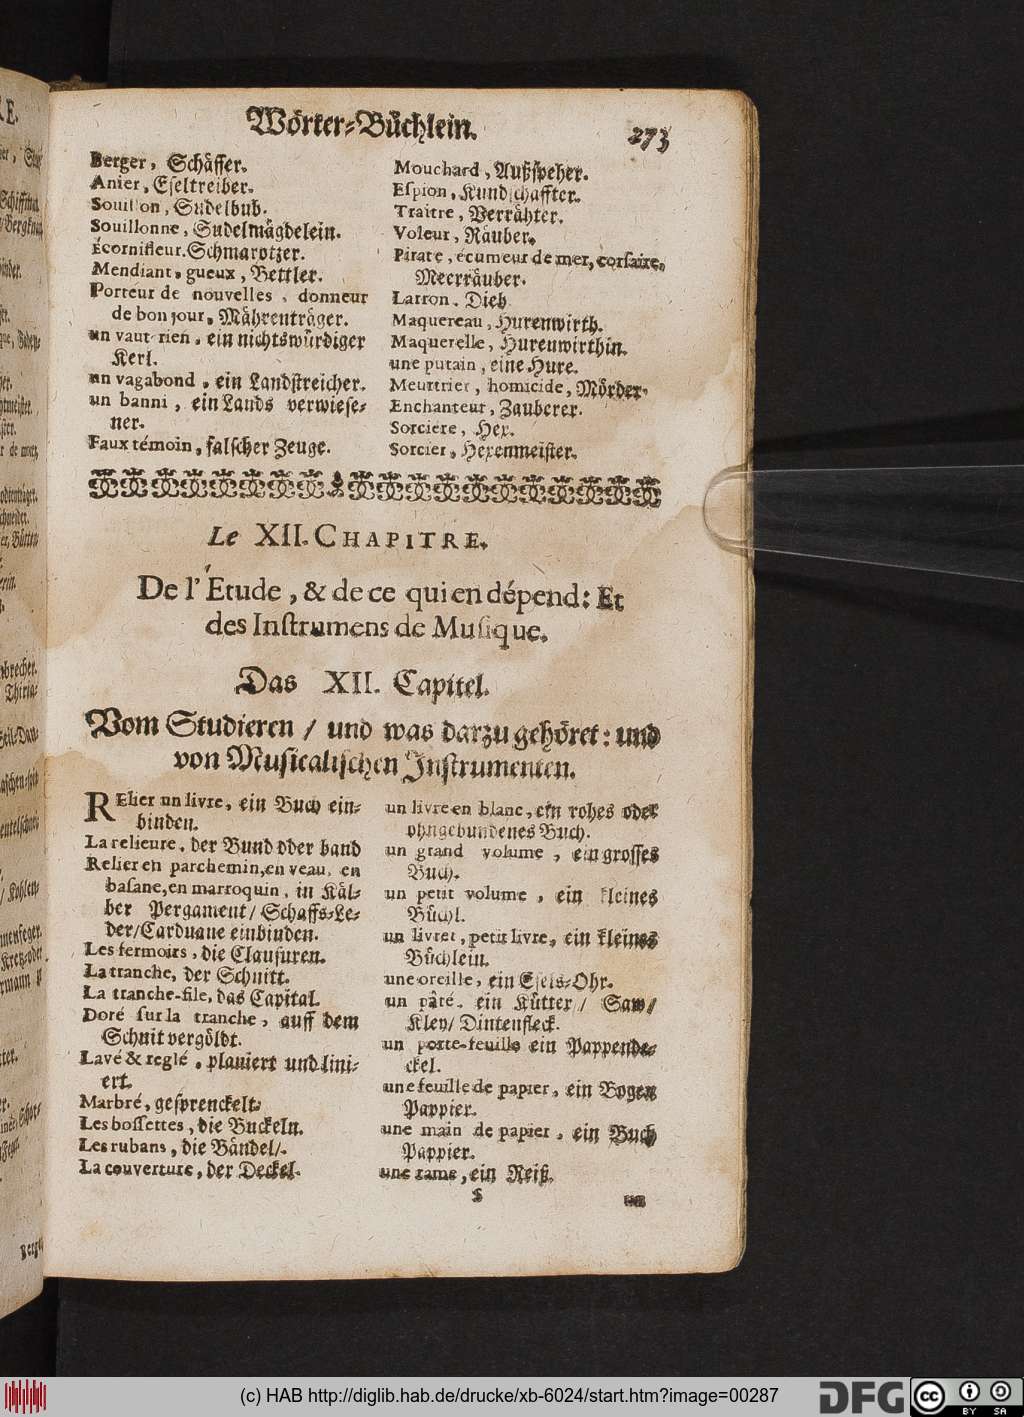 Wörter-Büchlein.
273
Berger, Schäffer.
Anier, Eseltreiber.
Souillon, Sudelbub.
Souillonne, Sudelmägdelein.
Écornifleur. Schmarotzer.
Mendiant, gueux, Bettler.
Porteur de nouvelles, donneur
de bon jour, Mährenträger.
un vaut-rien, ein nichtswürdiger
Kerl.
un vagabond, ein Landstreicher.
un banni, ein Lands verwiese-
ner.
Faux témoin, falscher Zeuge.
Mouchard, Außspeher.
Espion, Kundschaffter.
Traitre, Verrähter.
Voleur, Räuber.
Pirate, écumeur de mer, corsaire,
Meerräuber.
Larron, Dieb
Maquereau, Hurenwirth.
Maquerelle, Hurenwirthin.
une putain, eine Hure.
Meurtrier, homicide, Mörder.
Enchanteur, Zauberer.
Sorciere, Hex.
Sorcier, Hexenmeister.
Le XII. CHAPITRE.
De l'Étude, & de ce qui en dépend: Et
des Instrumens de Musique.
Das XII. Capitel.
Vom Studieren / und was darzu gehöret: und
von Musicalischen Instrumenten.
RElier un livre, ein Buch ein-
binden.
La relieure, der Bund oder band
Relier en parchemin, en veau, en
basane, en marroquin, in Käl-
ber Pergament / Schaffs-Le-
der / Carduane einbinden.
Les fermoirs, die Clausuren.
La tranche, der Schnitt.
La tranche-file, das Capital.
Doré sur la tranche, auff dem
Schnit vergöldt.
Lavé & reglé, planiert und lini-
ert.
Marbré, gesprenckelt.
Les bossettes, die Buckeln.
Les rubans, die Bändel /.
La couverture, der Deckel.
un livre en blanc, ein rohes oder
ohngebundenes Buch.
un grand volume, ein grosses
Buch.
un petit volume, ein kleines
Büchl.
un livret, petit livre, ein kleines
Büchlein.
une oreille, ein Esels-Ohr.
un pâté, ein Kütter / Saw /
Kley / Dintenfleck.
un porte-feuille ein Pappende-
ckel.
une feuille de papier, ein Bogen
Pappier.
une main de papier, ein Buch
Pappier.
une rame, ein Reiß.
S
une
(c) HAB http://diglib.hab.de/drucke/xb-6024/start.htm?image=00287
DFG
cc
BY SA